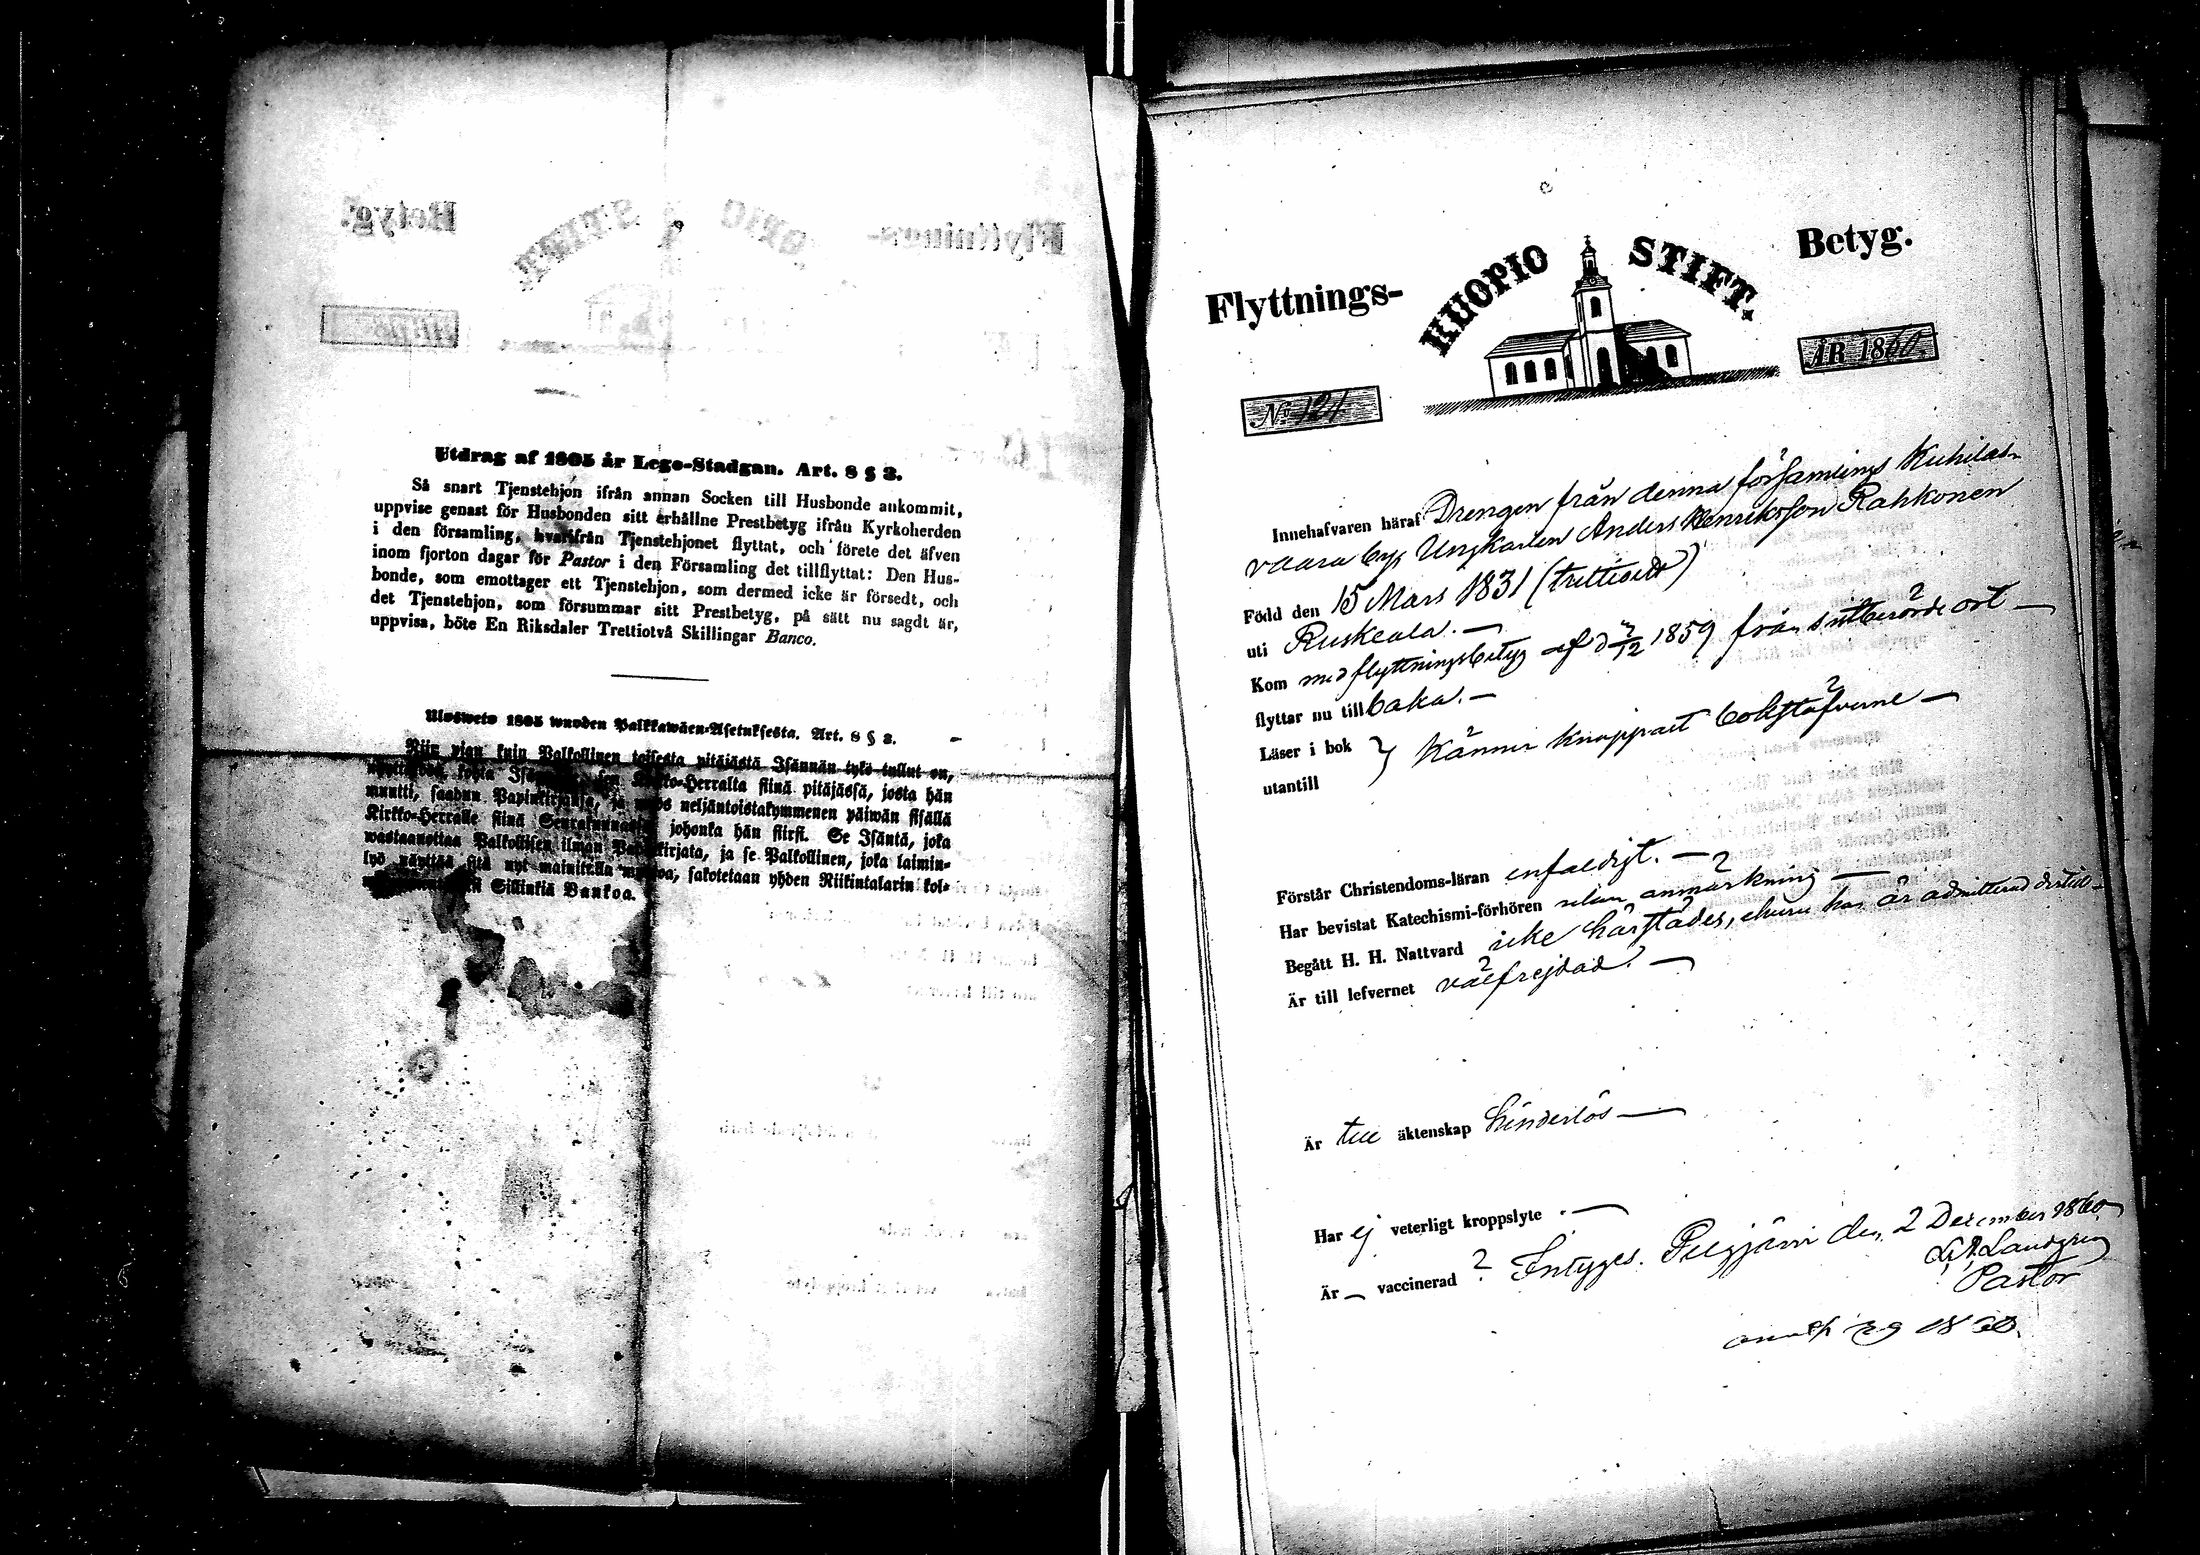 Utdrag af 1805 år Lego-Stadgan. Art. 8 § 3.
Så snart Tjenstehjon ifrån annan Socken till Husbonde ankommit,
uppvise genast för Husbonden sitt erhållne Prestbetyg ifrån Kyrkoherden
i den församling, hvarifrån Tjenstehjonet flyttat, och förete det äfven
inom fjorton dagar för Pastor i den Församling det tillflyttat: Den Hus-
bonde, som emottager ett Tjenstehjon, som dermed icke är försedt, och
det Tjenstehjon, som försummar sitt Prestbetyg, på sätt nu sagdt är,
uppvisa, böte En Riksdaler Trettiotvå Skillingar Banco.
Ulosweto 1805 wuoden Palkkawäen-Asetuksesta. Art. 8 § 3.
Niin pian kuin Palkollinen toisesta pitäjästä Isännän tykö tullut on,
Kirkko-Herralta siinä pitäjässä, josta hän
muutti, saadun Papinkirjansa, ja myös neljäntoistakymmenen päiwän sisällä
Kirkko-Herralle siinä Seurakunnassa johonka hän siirsi. Se Isäntä, joka
wastaanottaa Palkollisen ilman Papinkirjata, ja se Palkollinen, joka laimin-
lyö näyttää sitä nyt mainitulla muotoa, sakotetaan yhden Riikintalarin kol-
Sillinkiä Bankoa.
Flyttnings-
KUOPIO STIFT.
Betyg.
No 121
ÅR 1860.
Innehafvaren häraf Drengen från denna församlings Kuhilas-
vaara by, Ungkarlen Anders Henriksson Rahkonen
Född den 15 Mars 1831 (trettioett)
uti Ruskeala. —
Kom med flyttningsbetyg af d 1859 från sitberörde ort —
flyttar nu tillbaka. —
Läser i bok
utantill } Känner knappast bokstäfverne —
Förstår Christendoms-läran enfaldigt. —
Har bevistat Katechismi-förhören utan anmärkning —
Begått H. H. Nattvard icke härstädes, ehuru han är admitterad dertill —
Är till lefvernet välfrejdad. —
Är till äktenskap hinderlös —
Har ej veterligt kroppslyte . —
Är — vaccinerad ? Intygas. Pelgjärvi den 2 December 1860
Landgren
Pastor